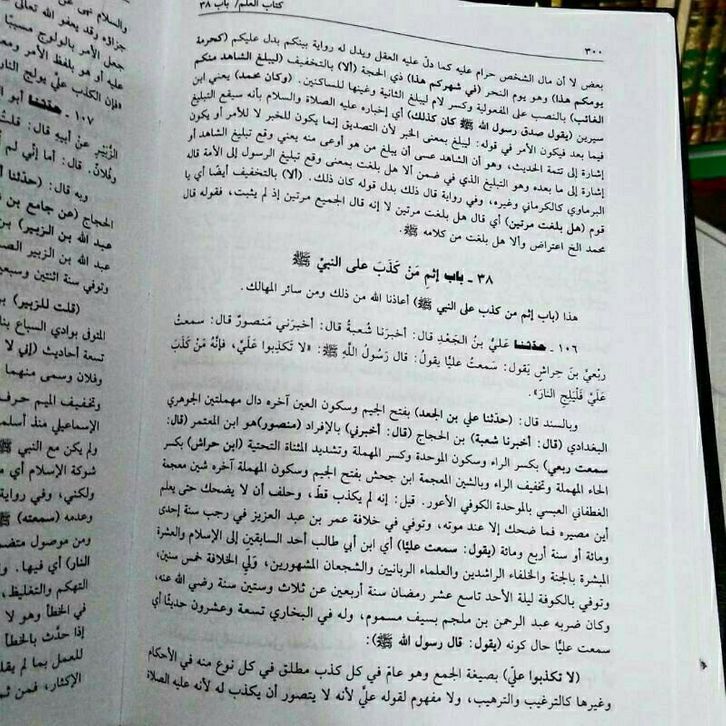 كتاب العلم/ باب ٣٨
٣٠٠
بعض لا أن مال الشخص حرام عليه كما دلّ عليه العقل ويدل له رواية بينكم بدل عليكم (كحرمة
يومكم هذا) وهو يوم النحر (في شهركم هذا) ذي الحجة (ألا) بالتخفيف (ليبلغ الشاهد منكم
الغائب) بالنصب على المفعولية وكسر لام ليبلغ الثانية وغينها للساكنين. (وكان محمد) يعني ابن
سيرين (يقول صدق رسول الله ﷺ كان كذلك) أي إخباره عليه الصلاة والسلام بأنه سيقع التبليغ
فيما بعد فيكون الأمر في قوله: ليبلغ بمعنى الخبر لأن التصديق إنما يكون للخبر لا للأمر أو يكون
إشارة إلى تتمة الحديث، وهو أن الشاهد عسى أن يبلغ من هو أوعى منه يعني وقع تبليغ الشاهد أو
إشارة إلى ما بعده وهو التبليغ الذي في ضمن ألا هل بلغت بمعنى وقع تبليغ الرسول إلى الأمة قاله
البرماوي كالكرماني وغيره، وفي رواية قال ذلك بدل قوله كان ذلك. (ألا) بالتخفيف أيضًا أي يا
قوم (هل بلغت مرتين) أي قال هل بلغت مرتين لا إنه قال الجميع مرتين إذ لم يثبت، فقوله قال
محمد الخ اعتراض وألا هل بلغت من كلامه ﷺ.
٣٨ ـ باب إثمِ مَنْ كَذَبَ على النبيِّ ﷺ
هذا (باب إثم من كذب على النبي ﷺ) أعاذنا الله من ذلك ومن سائر المهالك.
١٠٦ ـ حدّثنا عَليُّ بنُ الجَعْدِ قال: أخبرَنا شُعبةُ قال: أخبرَني مَنصورٌ قال: سمعتُ
رِبْعيَّ بنَ حِراشٍ يَقول: سَمعتُ عليًّا يقولُ: قال رَسُولُ اللَّهِ ﷺ: «لا تَكذِبوا عَلَيَّ، فإنَّهُ مَنْ كَذَبَ
عَلَيَّ فَلْيَلِجِ النارَ».
وبالسند قال: (حدّثنا علي بن الجعد) بفتح الجيم وسكون العين آخره دال مهملتين الجوهري
البغدادي (قال: أخبرنا شعبة) بن الحجاج (قال: أخبرني) بالإفراد (منصور) هو ابن المعتمر (قال:
سمعت ربعي) بكسر الراء وسكون الموحدة وكسر المهملة وتشديد المثناة التحتية (ابن حراش) بكسر
الحاء المهملة وتخفيف الراء وبالشين المعجمة ابن جحش بفتح الجيم وسكون المهملة آخره شين معجمة
الغطفاني العبسي بالموحدة الكوفي الأعور. قيل: إنه لم يكذب قطّ، وحلف أن لا يضحك حتى يعلم
أين مصيره فما ضحك إلا عند موته، وتوفي في خلافة عمر بن عبد العزيز في رجب سنة إحدى
ومائة أو سنة أربع ومائة (يقول: سمعت عليًّا) أي ابن أبي طالب أحد السابقين إلى الإسلام والعشرة
المبشرة بالجنة والخلفاء الراشدين والعلماء الربانيين والشجعان المشهورين، ولي الخلافة خمس سنين،
وتوفي بالكوفة ليلة الأحد تاسع عشر رمضان سنة أربعين عن ثلاث وستين سنة رضي الله عنه،
وكان ضربه عبد الرحمن بن ملجم بسيف مسموم، وله في البخاري تسعة وعشرون حديثًا أي
سمعت عليًّا حال كونه (يقول: قال رسول الله ﷺ):
(لا تكذبوا عليّ) بصيغة الجمع وهو عامّ في كل كذب مطلق في كل نوع منه في الأحكام
وغيرها كالترغيب والترهيب، ولا مفهوم لقوله عليّ لأنه لا يتصور أن يكذب له لأنه عليه الصلاة
والسلام نهى عن
جزاؤه وقد يعفو الله تعالى
جعل الأمر بالولوج مسببًا
عليه أو هو بلفظ الأمر ومعناه
«فإن الكذب عليّ يولج النار
١٠٧ ـ حدّثنا أبو
الزُّبَيْرِ عن أبيهِ قال: قلتُ
وفُلانٌ. قال: أما إنّي لم
وبه قال: (حدّثنا
الحجاج (عن جامع بن
عبد الله بن الزبير)
عبد الله بن الزبير
وتوفي سنة اثنتين وسبعين
(قلت للزبير)
المتوفى بوادي السباع
تسعة أحاديث (إني لا
وفلان وسمى منهما
وتخفيف الميم حرف
الإسماعيلي منذ أسلمت
ولم يكن مع النبي ﷺ
شوكة الإسلام أي
ولكني، وفي رواية
وعدمه (سمعته)
ومن موصول متضمن
النار) أي فيها.
التهكم والتغليظ،
في الخطأ وهو لا
إذا حدّث بالخطأ
للعمل بما لم
الإكثار، فمن